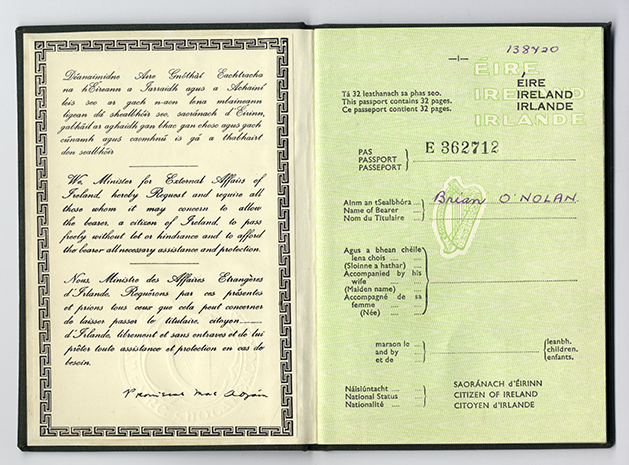 Déanaimídne Aire Gnóthaí Eachtracha
na hÉireann a Iarraidh agus a Achainí
leis seo ar gach n-aon lena mbaineann
ligean dá shealbhóir seo, saoránach d'Éirinn,
gabháil ar aghaidh gan bhac gan chosc agus gach
cúnamh agus caomhnú is gá a thabhairt
don sealbhóir
We, Minister for External Affairs of
Ireland, hereby Request and require all
those whom it may concern to allow
the bearer, a citizen of Ireland, to pass
freely without let or hindrance and to afford
the bearer all necessary assistance and protection.
Nous, Ministre des Affaires Etrangères
d'Irlande, Requérons par ces présentes
et prions tous ceux que cela peut concerner
de laisser passer le titulaire, citoyen
d'Irlande, librement et sans entraves et de lui
prêter toute assistance et protection en cas de
besoin.
Proinsias Mac Aogáin
138420
—1—
ÉIRE
IRELAND
IRLANDE
ÉIRE
IRELAND
IRLANDE
Tá 32 leathanach sa phas seo.
This passport contains 32 pages.
Ce passeport contient 32 pages.
PAS
PASSPORT
PASSEPORT
E 362712
Ainm an tSealbhóra
Name of Bearer
Nom du Titulaire
Brian O'NOLAN.
Agus a bhean chéile
lena chois
(Sloinne a hathar)
Accompanied by his
wife
(Maiden name)
Accompagné de sa
femme
(Née)
maraon le
and by
et de
leanbh.
children.
enfants.
Náisiúntacht
National Status
Nationalité
SAORÁNACH d'ÉIRINN
CITIZEN OF IRELAND
CITOYEN d'IRLANDE